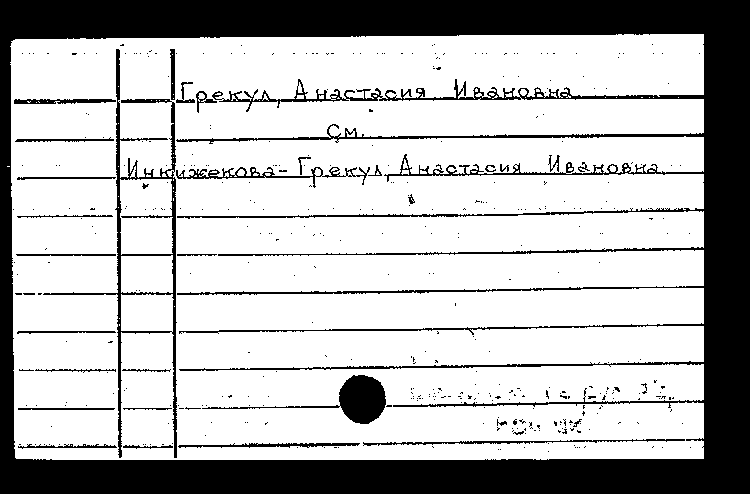 Грекул, Анастасия Ивановна
См.
Инкижекова-Грекул, Анастасия Ивановна